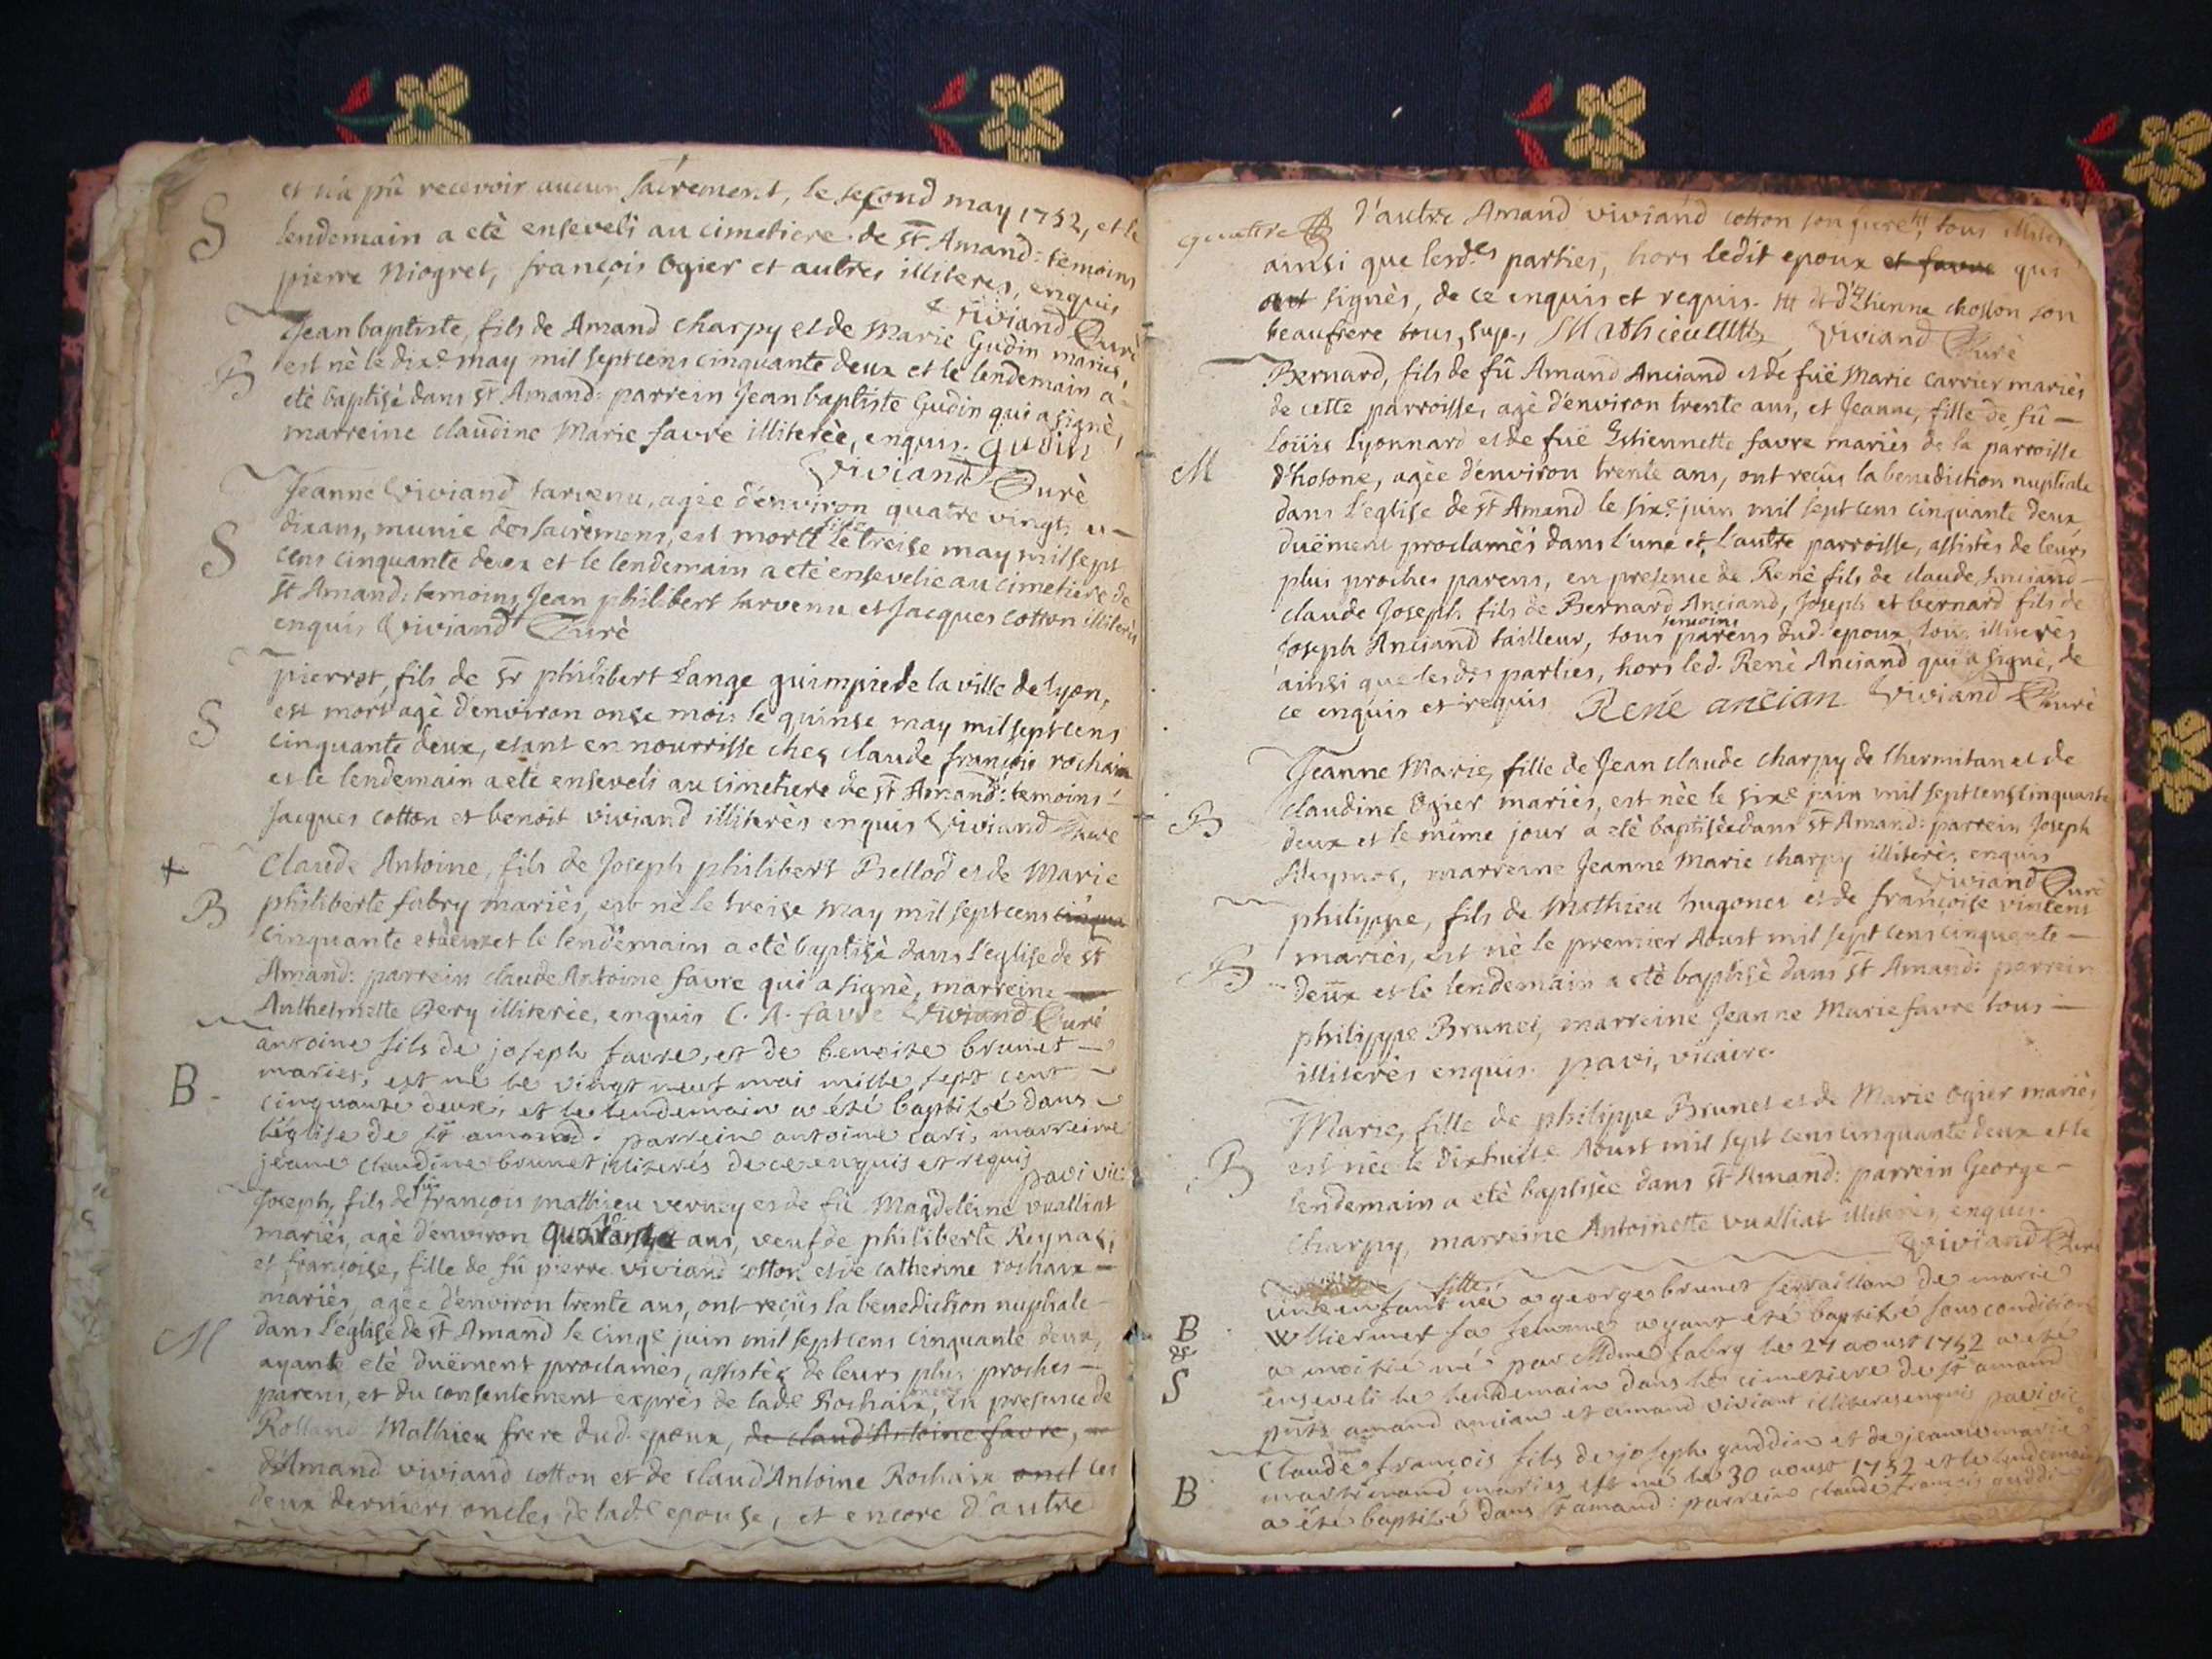 et n'a pû recevoir aucun sacrement, le second may 1752, et le
S
lendemain a etè enseveli au cimetiere de st Amand: temoins
pierre Niogret, françois Ogier et autres illiteres, enquis
Viviand Curè
Jean baptiste, fils de Amand charpy et de Marie Gudin mariés,
est nè le dixe may mil sept cens cinquante deux et le lendemain a
B
etè baptisè dans st Amand: parrein Jean baptiste Gudin qui a signè,
marreine claudine Marie favre illiterèe, enquis. Gudin
Viviand Curè
Jeanne Viviand sarvenu, agèe d'environ quatre vingt u-
dix ans, munie des sacremens, est morte le treise may mil sept
S
cens cinquante deux et le lendemain a etè ensevelie au cimetiere de
st Amand: temoins Jean philibert sarvenu et Jacques cotton illiterès
enquis Viviand Curè
pierrot, fils de sr philibert Lange guimpie de la ville de lyon,
est mort agè d'environ onse mois le quinse may mil sept cens
S
cinquante deux, etant en nourrisse ches claude françois rochaix
et le lendemain a etè enseveli au cimetiere de st Amand: temoins
Jacques cotton et benoit viviand illiterès enquis Viviand Curè
+
Claude Antoine, fils de Joseph philibert Bellod et de Marie
B
philiberte fabry mariès, est nè le treise may mil sept cens cinqua
cinquante et deux et le lendemain a etè baptisè dans l'eglise de st
Amand: parrein claude Antoine favre qui a signè, marreine
Anthelmette Pery illiterèe, enquis C. A. favre Viviand Curè
antoine fils de joseph favre, et de benoite brunet
mariés, est né le vingt neuf mai mille sept cent
B
cinquante deux, et le lendemain a été baptisé dans
l'église de st amand: parrein antoine cari, marreine
jeane claudine brunet illiterés de ce enquis et requis
pavi vic:
Joseph, fils de fû françois mathieu verney et de fû Magdeleine vualliat
mariès, agè d'environ quarante ans, veuf de philiberte Reynaly
et françoise, fille de fû pierre viviand cotton et de catherine rochaix
mariès, agèe d'environ trente ans, ont reçüs la benediction nuptiale
M
dans l'eglise de st Amand le cinqe juin mil sept cens cinquante deux,
ayants etè duëment proclamès, assistès de leurs plus proches
parens, et du consentement exprès de lade Rochaix, en presence de
Rolland Mathieu frere dud. epoux, de claud'Antoine favre,
d'Amand viviand cotton et de claud'Antoine Rochaix ces
deux derniers oncles de lade epouse, et encore d'autre
d'autre Amand viviand cotton son frere, tous illiter
ainsi que lesdes parties, hors ledit epoux et favre qui
signès, de ce enquis et requis. et d'Etienne chosson son
beaufrere tous, sup., Mathieu Viviand Curè
Bernard, fils de fû Amand Anciand et de fuë Marie carrier mariès
de cette parroisse, agè d'environ trente ans, et Jeanne, fille de fû
Loüis Lyonnard et de fuë Estiennette favre mariès de la parroisse
M
d'hosone, agèe d'environ trente ans, ont reçûs la benediction nuptiale
dans l'eglise de st Amand le sixe juin mil sept cens cinquante deux,
duëment proclamès dans l'une et l'autre parroisse, assistès de leurs
plus proches parens, en presence de Renè fils de claude Anciand
claude Joseph fils de Bernard Anciand, Joseph et bernard fils de
Joseph Anciand tailleur, tous temoins parens dud. epoux, tous illiterès
ainsi que lesdes parties, hors led. Renè Anciand qui a signè, de
ce enquis et requis René ancian Viviand Curè
Jeanne Marie, fille de Jean claude charpy de l'hermitan et de
claudine Ogier mariès, est nèe le sixe juin mil sept cens cinquante
B
deux et le mème jour a etè baptisèe dans st Amand: parrein Joseph
marreine Jeanne Marie charpy illiterès enquis
Viviand Curè
philippe, fils de Mathieu hugonet et de françoise vincent
mariès, est nè le premier Aoust mil sept cens cinquante
B
deux et le lendemain a etè baptisè dans st Amand: parrein
philippe Brunet, marreine Jeanne Marie favre tous
illiterès enquis. pavi, vicaire
Marie, fille de philippe Brunet et de Marie Ogier mariès
est nèe le dixhuitte Aoust mil sept cens cinquante deux et le
B
lendemain a etè baptisèe dans st Amand: parrein George
charpy, marreine Antoinette vualliat illiterès, enquis.
Viviand Curè
un enfant fille né a george brunet serraillon de marie
B
&
S
sa femme ayant été baptisé sous condition
a moitié né par Mdme fabry le 24 aoust 1752 a été
enseveli le lendemain dans le cimetiere de st amand
pnts amand ancian et amand viviant illiteres enquis pavi vic
Claude françois fils de joseph guddin et de jeanne marie
B
mariés est né le 30 aoust 1752 et le lendemain
a été baptisé dans st amand: parrein claude françois guddin